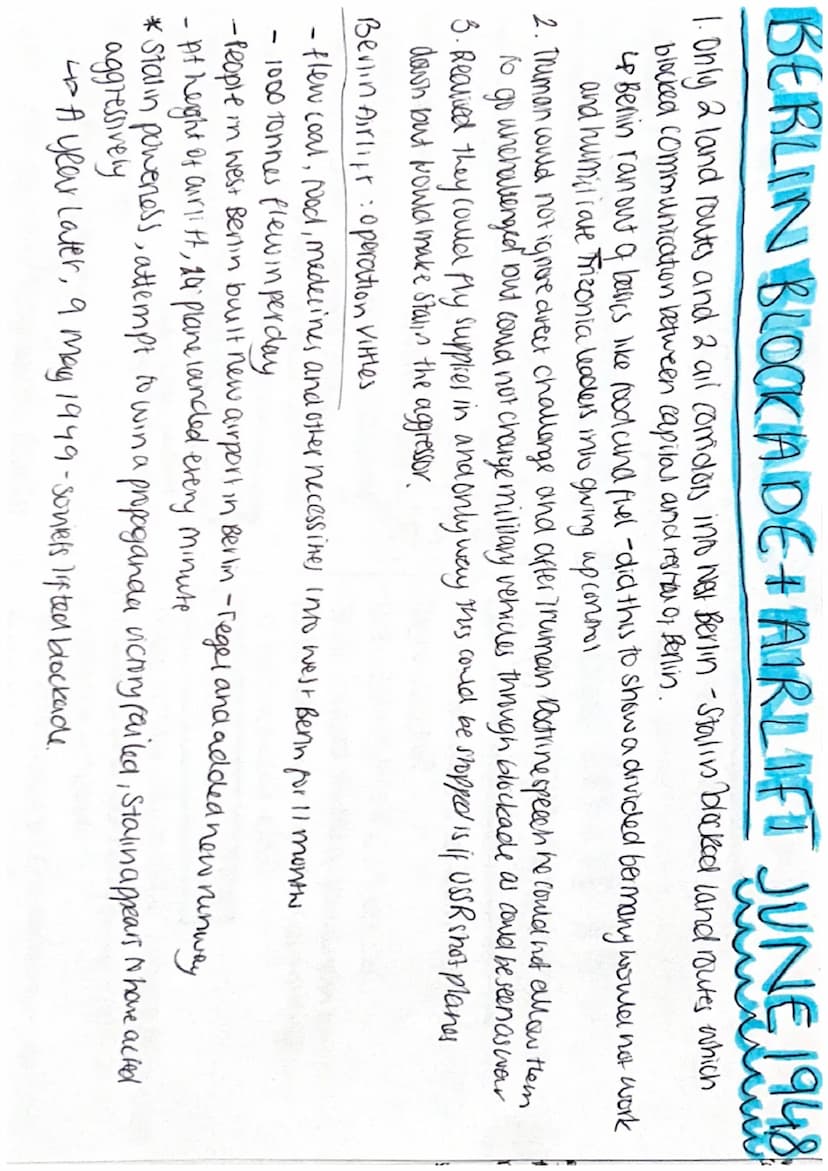 BERLIN BLOCKADE + AIRLIFT JUNE 1948
1. Only 2 land routes and 2 air corridors into West Berlin - Stalin blocked land routes which
blocked communication between capital and rest of Berlin.
↳ Berlin ran out of basics like food and fuel - did this to show a divided Germany would not work
and humiliate Trizonia leaders into giving up control
2. Truman could not ignore direct challenge and after Truman Doctrine speech he could not allow them
to go unchallenged but could not charge military vehicles through blockade as could be seen as war
3. Realised they could fly supplies in and only way this could be stopped is if USSR shot planes
down but would make Stalin the aggressor.
Berlin Airlift: Operation Vittles
- flew coal, food, medecines and other necessities into West Berlin for 11 months
- 1000 tonnes flew in per day
- People in West Berlin built new airport in Berlin - Tegel and added new runway
- At height of airlift, plane landed every minute
* Stalin powerless, attempt to win a propaganda victory failed, Stalin appears to have acted
aggressively
↳ A year later, 9 May 1949 - soviets lifted blockade.